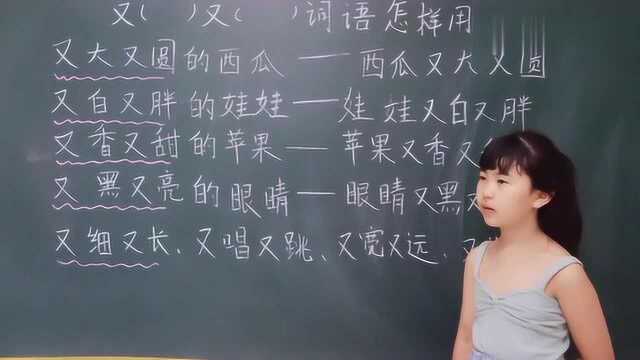 又( )又( )词语怎样用
又大又圆的西瓜——西瓜又大又圆
又白又胖的娃娃——娃娃又白又胖
又香又甜的苹果——苹果又香又
又黑又亮的眼睛——眼睛又黑又
又细又长、又唱又跳、又宽又远、又